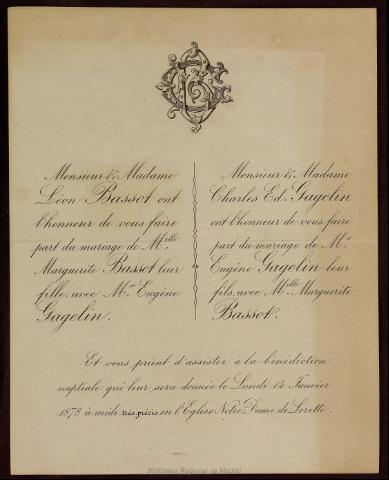 Monsieur & Madame
Léon Bassot ont
l'honneur de vous faire
part du mariage de M.lle
Marguerite Bassot leur
fille, avec Mr Eugène
Gagelin.
Monsieur & Madame
Charles Ed. Gagelin
ont l'honneur de vous faire
part du mariage de Mr
Eugène Gagelin leur
fils, avec M.lle Marguerite
Bassot.
Et vous prient d'assister à la bénédiction
nuptiale qui leur sera donnée le Lundi 14 Janvier
1878 à midi très précis en l'Eglise Notre Dame de Lorette.
Biblioteca Regional de Madrid